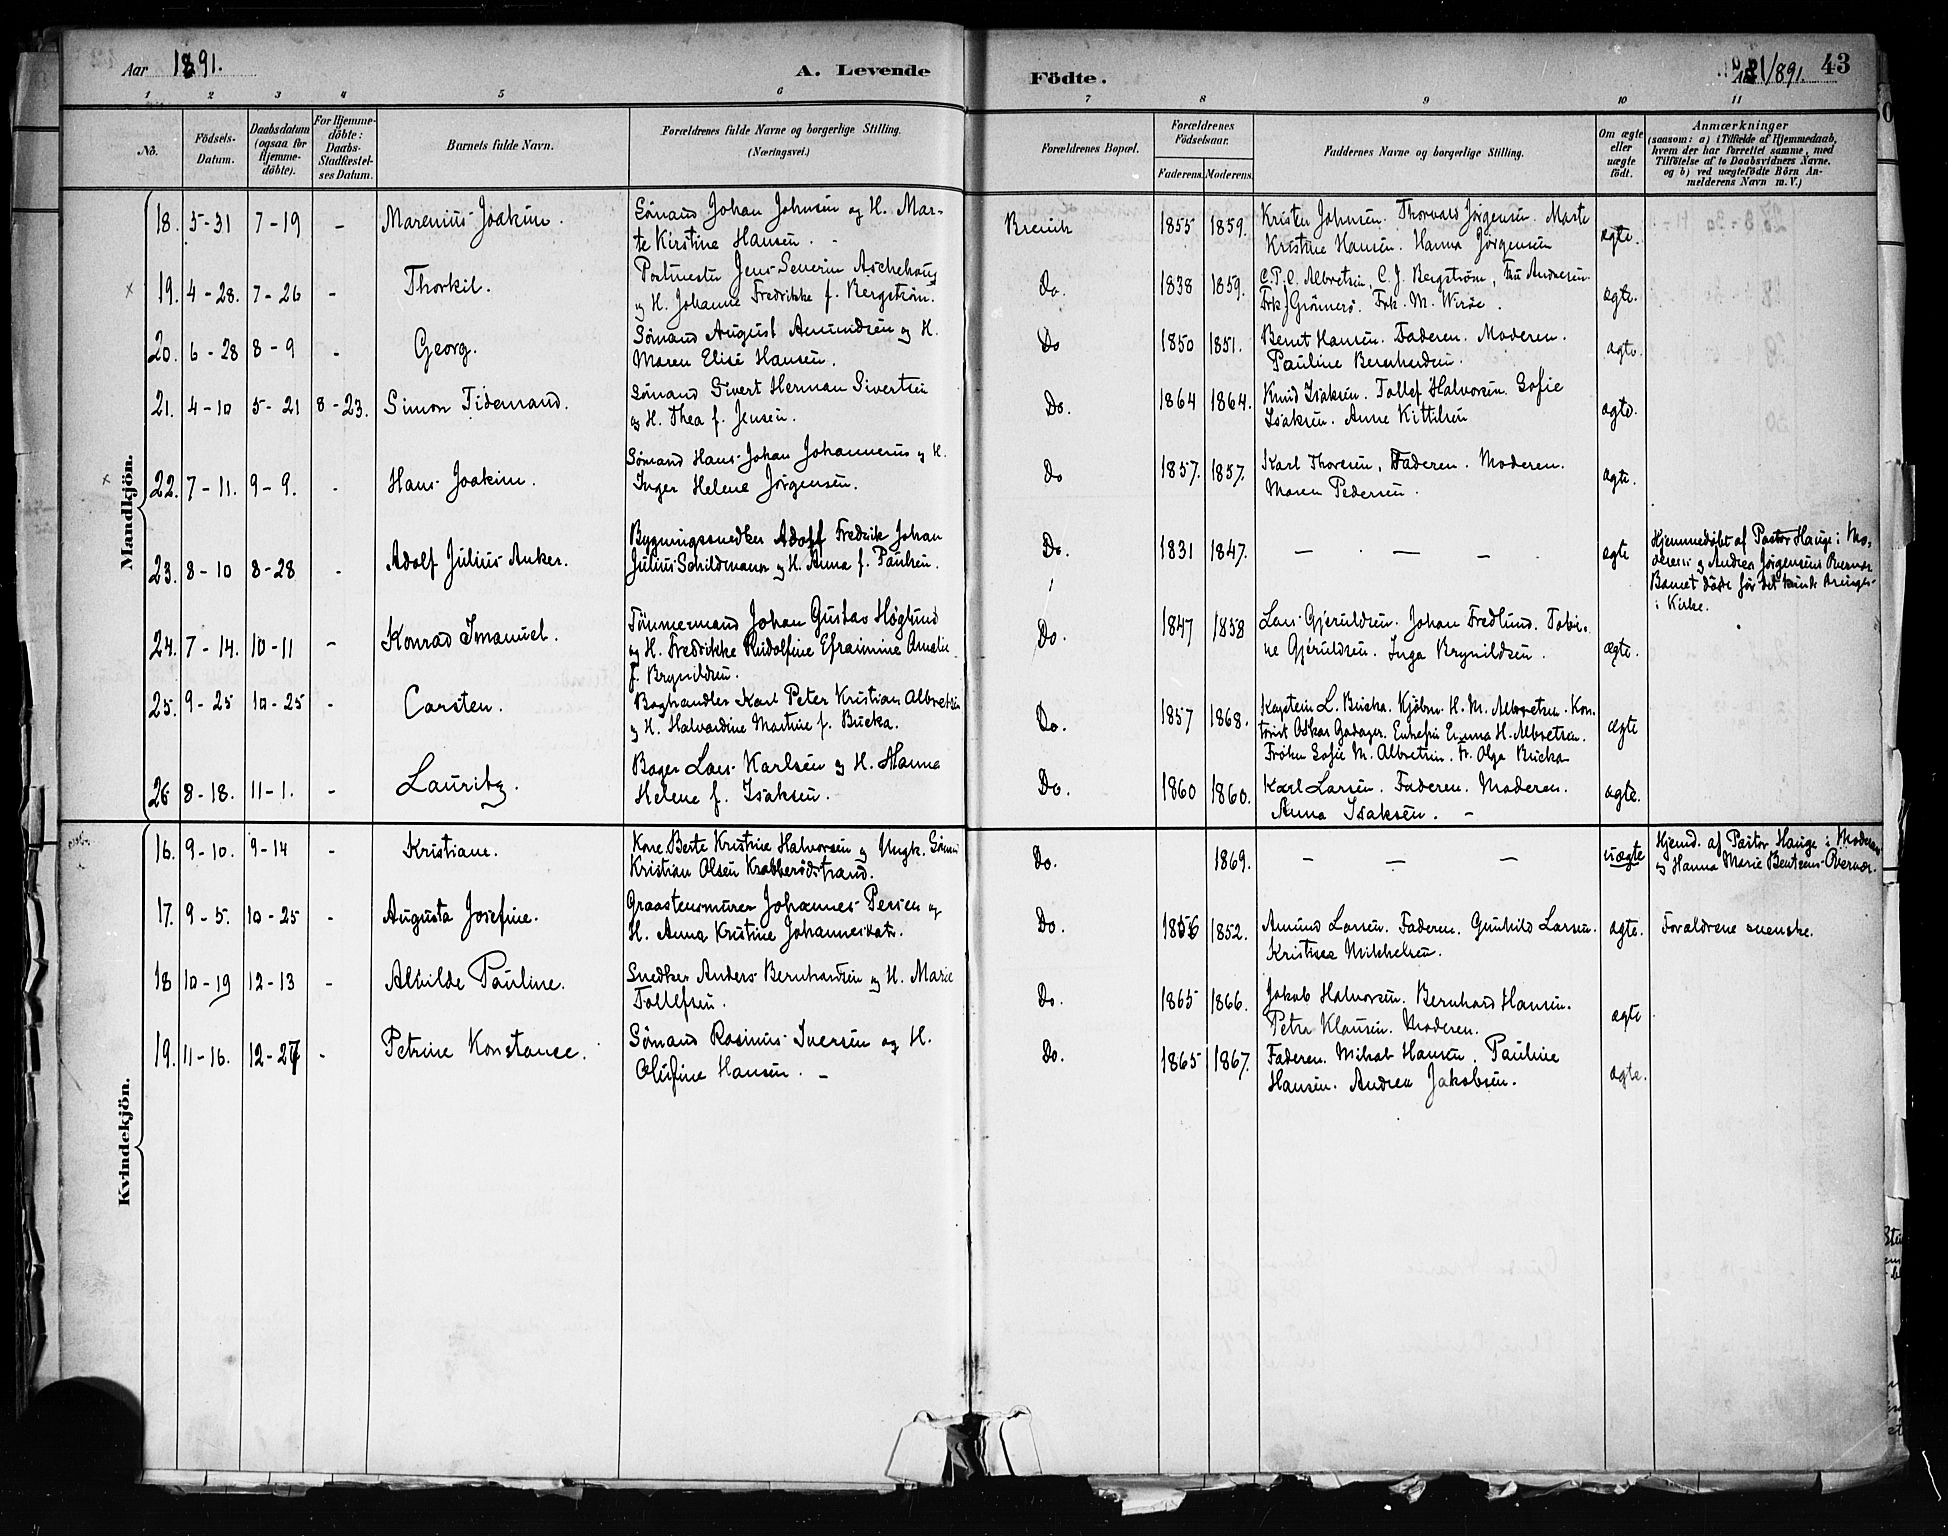 Aar 1891. A. Levende Födte. 1891. 43
1 2 3 4 5 6 7 8 9 10 11
No.
Födsels-Datum.
Daabsdatum (ogsaa for Hjemme-döbte).
For Hjemme-döbte: Daabs-Stadfæstel-ses Datum.
Barnets fulde Navn.
Forældrenes fulde Navne og borgerlige Stilling. (Næringsvei.)
Forældrenes Bopæl.
Forældrenes Födselsaar.
Faderens. Moderens.
Faddernes Navne og borgerlige Stilling.
Om ægte eller uægte födt.
Anmærkninger
(saasom: a) i Tilfælde af Hjemmedaab,
hvem der har forrettet samme, med
Tilföielse af to Daabsvidners Navne.
og b) ved uægtefödte Börn An-
melderens Navn m. V.)
Mandkjön.
18. 5-31 7-19 - Marenius Joakim. Sömand Johan Johnsen og H. Mar- Brevik 1855 1859. Krister Johnsen. Thorvald Jörgensen. Marte ægte.
te Kirstine Hansen. Kristine Hansen. Hanna Jörgensen
19. 4-28. 7-26 - Thorkil. Postmester Jens Severin Aschehoug Do. 1838 1859. C.P.C. Albretsen, C. J. Bergström, Andresen. ægte.
og H. Johanne Fredrikke f. Bergström. Frk J Grönnerö. Frk. M. Weröe.
20. 6-28 8-9 - Georg. Sömand August Amundsen og H. Do 1850 1851. Bernt Hansen. Faderen. Moderen. ægte.
Maren Elise Hansen. Pauline Bernhardsen.
21. 4-10 5-21 8-23. Simon Tidemand. Sömand Sivert Herman Sivertsen Do. 1864 1864. Knud Isaksen. Tollef Halvorsen. Sofie ægte.
og H. Thea f. Jensen. Isaksen. Anne Kittilsen
22. 7-11. 9-9. - Hans Joakim. Sömand Hans Johan Johannesen og H. Do 1857. 1857. Karl Thorsen, Faderen. Moderen. ægte.
Inger Helene Jörgensen. Maren Pedersen.
23. 8-10 8-28 - Adolf Julius Anker. Bygningssnedker Adolf Fredrik Johan Do. 1831 1847. - - - ægte Hjemmedöbt af Pastor Hauge i Mo-
Julius Schildmann og H. Anna f. Paulsen. derens og Andrea Jörgensens Overvær
Barnet döde för det kunde bringes
i Kirke.
24. 7-14. 10-11 - Konrad Imanuel. Tömmermand Johan Gustav Höglund Do. 1847 1858 Lars Gjeruldsen. Johan Fredlund. Tobi- ægte.
og H. Fredrikke Rudolfine Efraimine Amalie ne Gjeruldsen. Inga Brynildsen.
f. Brynildsen.
25. 9-25 10-25 - Carsten. Boghandler Karl Peter Kristian Albretsen Do. 1857 1868. Kaptein L. Bucka. Kjöbm. H. M. Albretsen. Kon- ægte
og H. Halvardine Martine f. Bucka. torist Oskar Gadager. Enkefru Emma H. Albretsen.
Fröken Sofie M. Albretsen. Fr. Olga Bucka
26 8-18. 11-1. - Lauritz. Bager Lars Karlsen og H. Hanna Do. 1860 1860. Karl Larsen. Faderen. Moderen. ægte.
Helene f. Isaksen. Anna Isaksen. -
Kvindekjön.
16. 9-10. 9-14 - Kristiane. Kone Berte Kristine Halvorsen og Ungk. Sömand Do. 1869. - - - uægte Hjemd. af Pastor Hauge i Moderens
Kristian Olsen Krabberödstrand. og Hanna Marie Bentsens Overvær.
17. 9-5. 10-25 - Augusta Josefine. Graastensmurer Johannes Persen og Do. 1856 1852. Amund Larsen. Faderen. Gunhild Larsen. ægte. Forældrene svenske.
H. Anna Kristine Johannesdatr. Kristiea Mikkelsen.
18 10-19 12-13 - Alvilde Pauline. Snedker Anders Bernhardsen og H. Marie Do. 1865 1866. Jakob Halvorsen. Bernhard Hansen. ægte
Tollefsen. Petra Klausen. Moderen.
19. 11-16. 12-27 - Petrine Konstanse. Sömand Rasmus Iversen og H. Do. 1865 1867. Faderen. Mikal Hansen. Pauline ægte.
Olufine Hansen. - Hansen. Andrea Jakobsen.